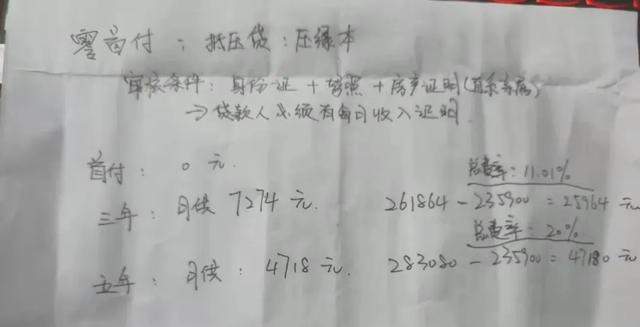 零首付：抵压贷：压绿本
审核条件：身份证＋驾照＋房产证明(直系亲属)
→ 贷款人必须有每月收入证明
首付：0元.
总费率：11.01%
三年：月供 7274元. 261864－235900＝25964元
总费率：20%
五年：月供：4718元. 283080－235900＝47180元